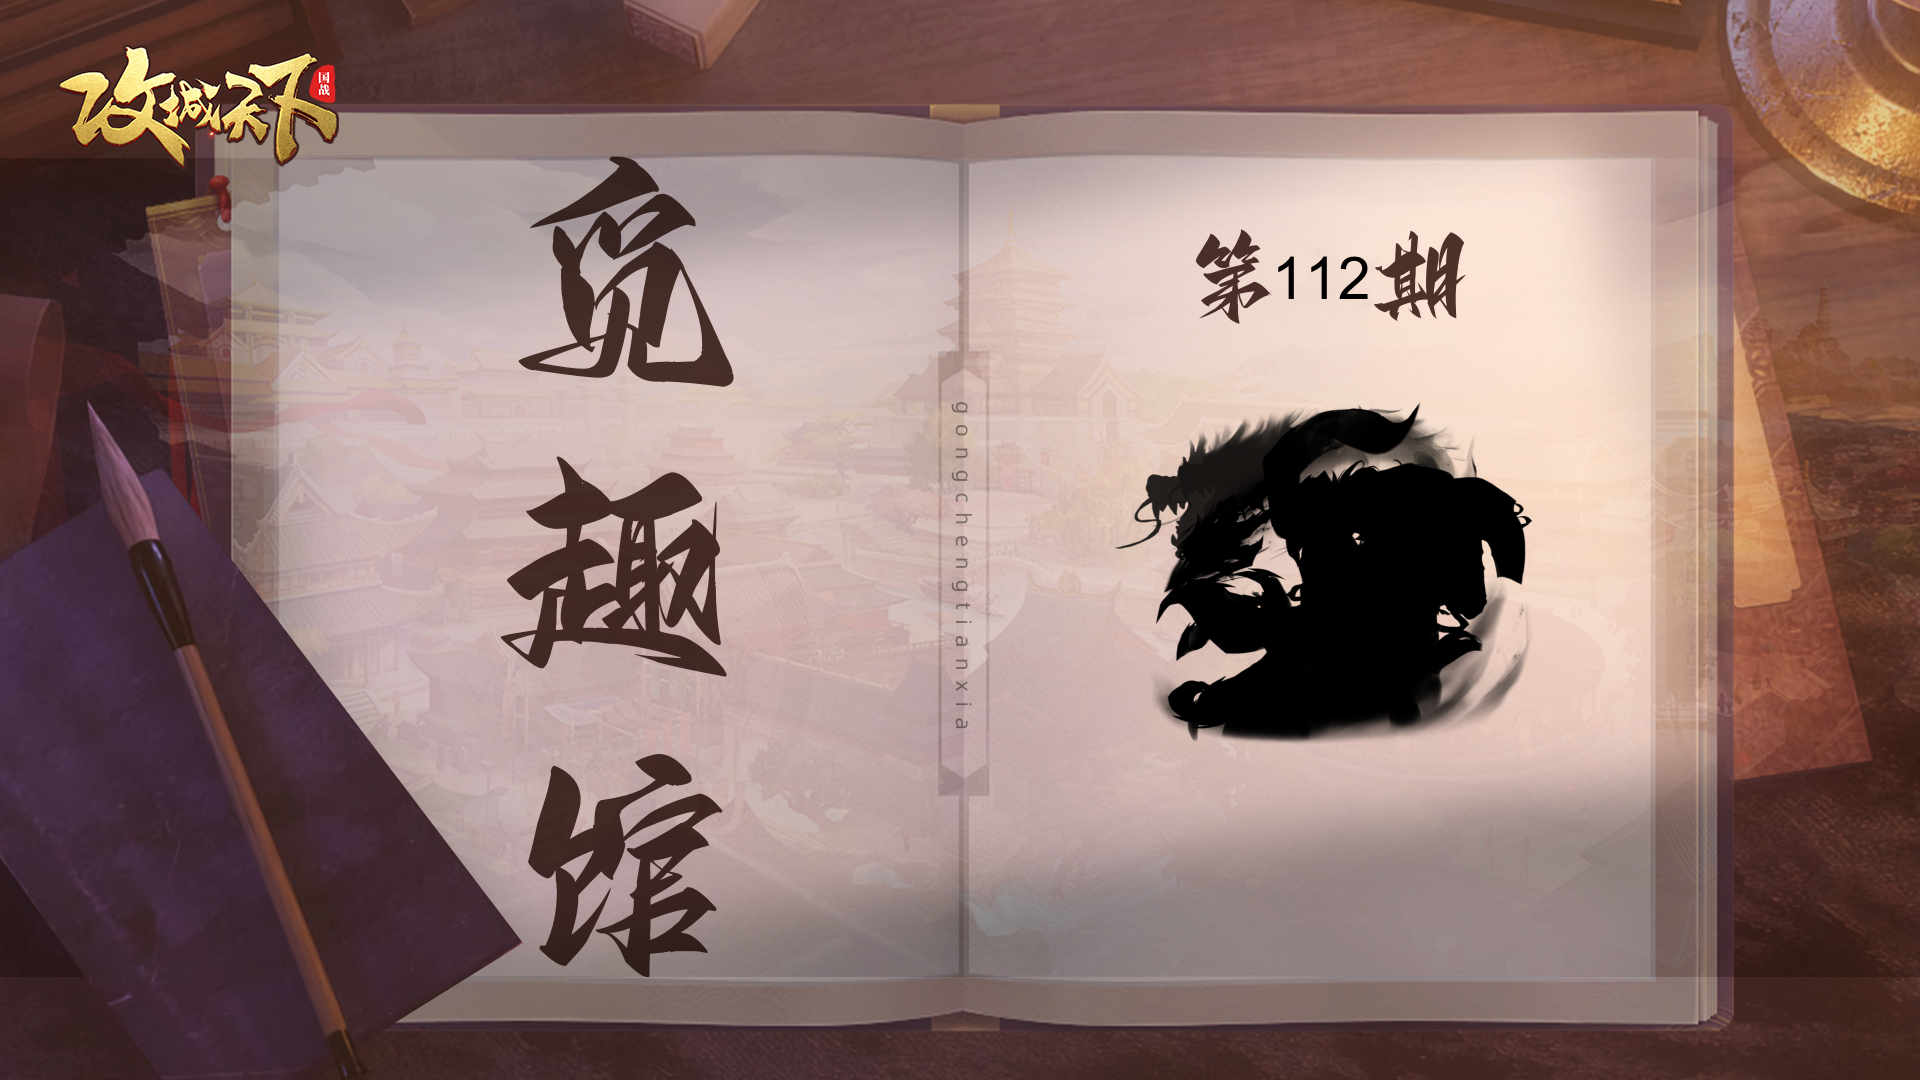 攻城天下
国战
觅趣馆
第112期
gongchengtianxia